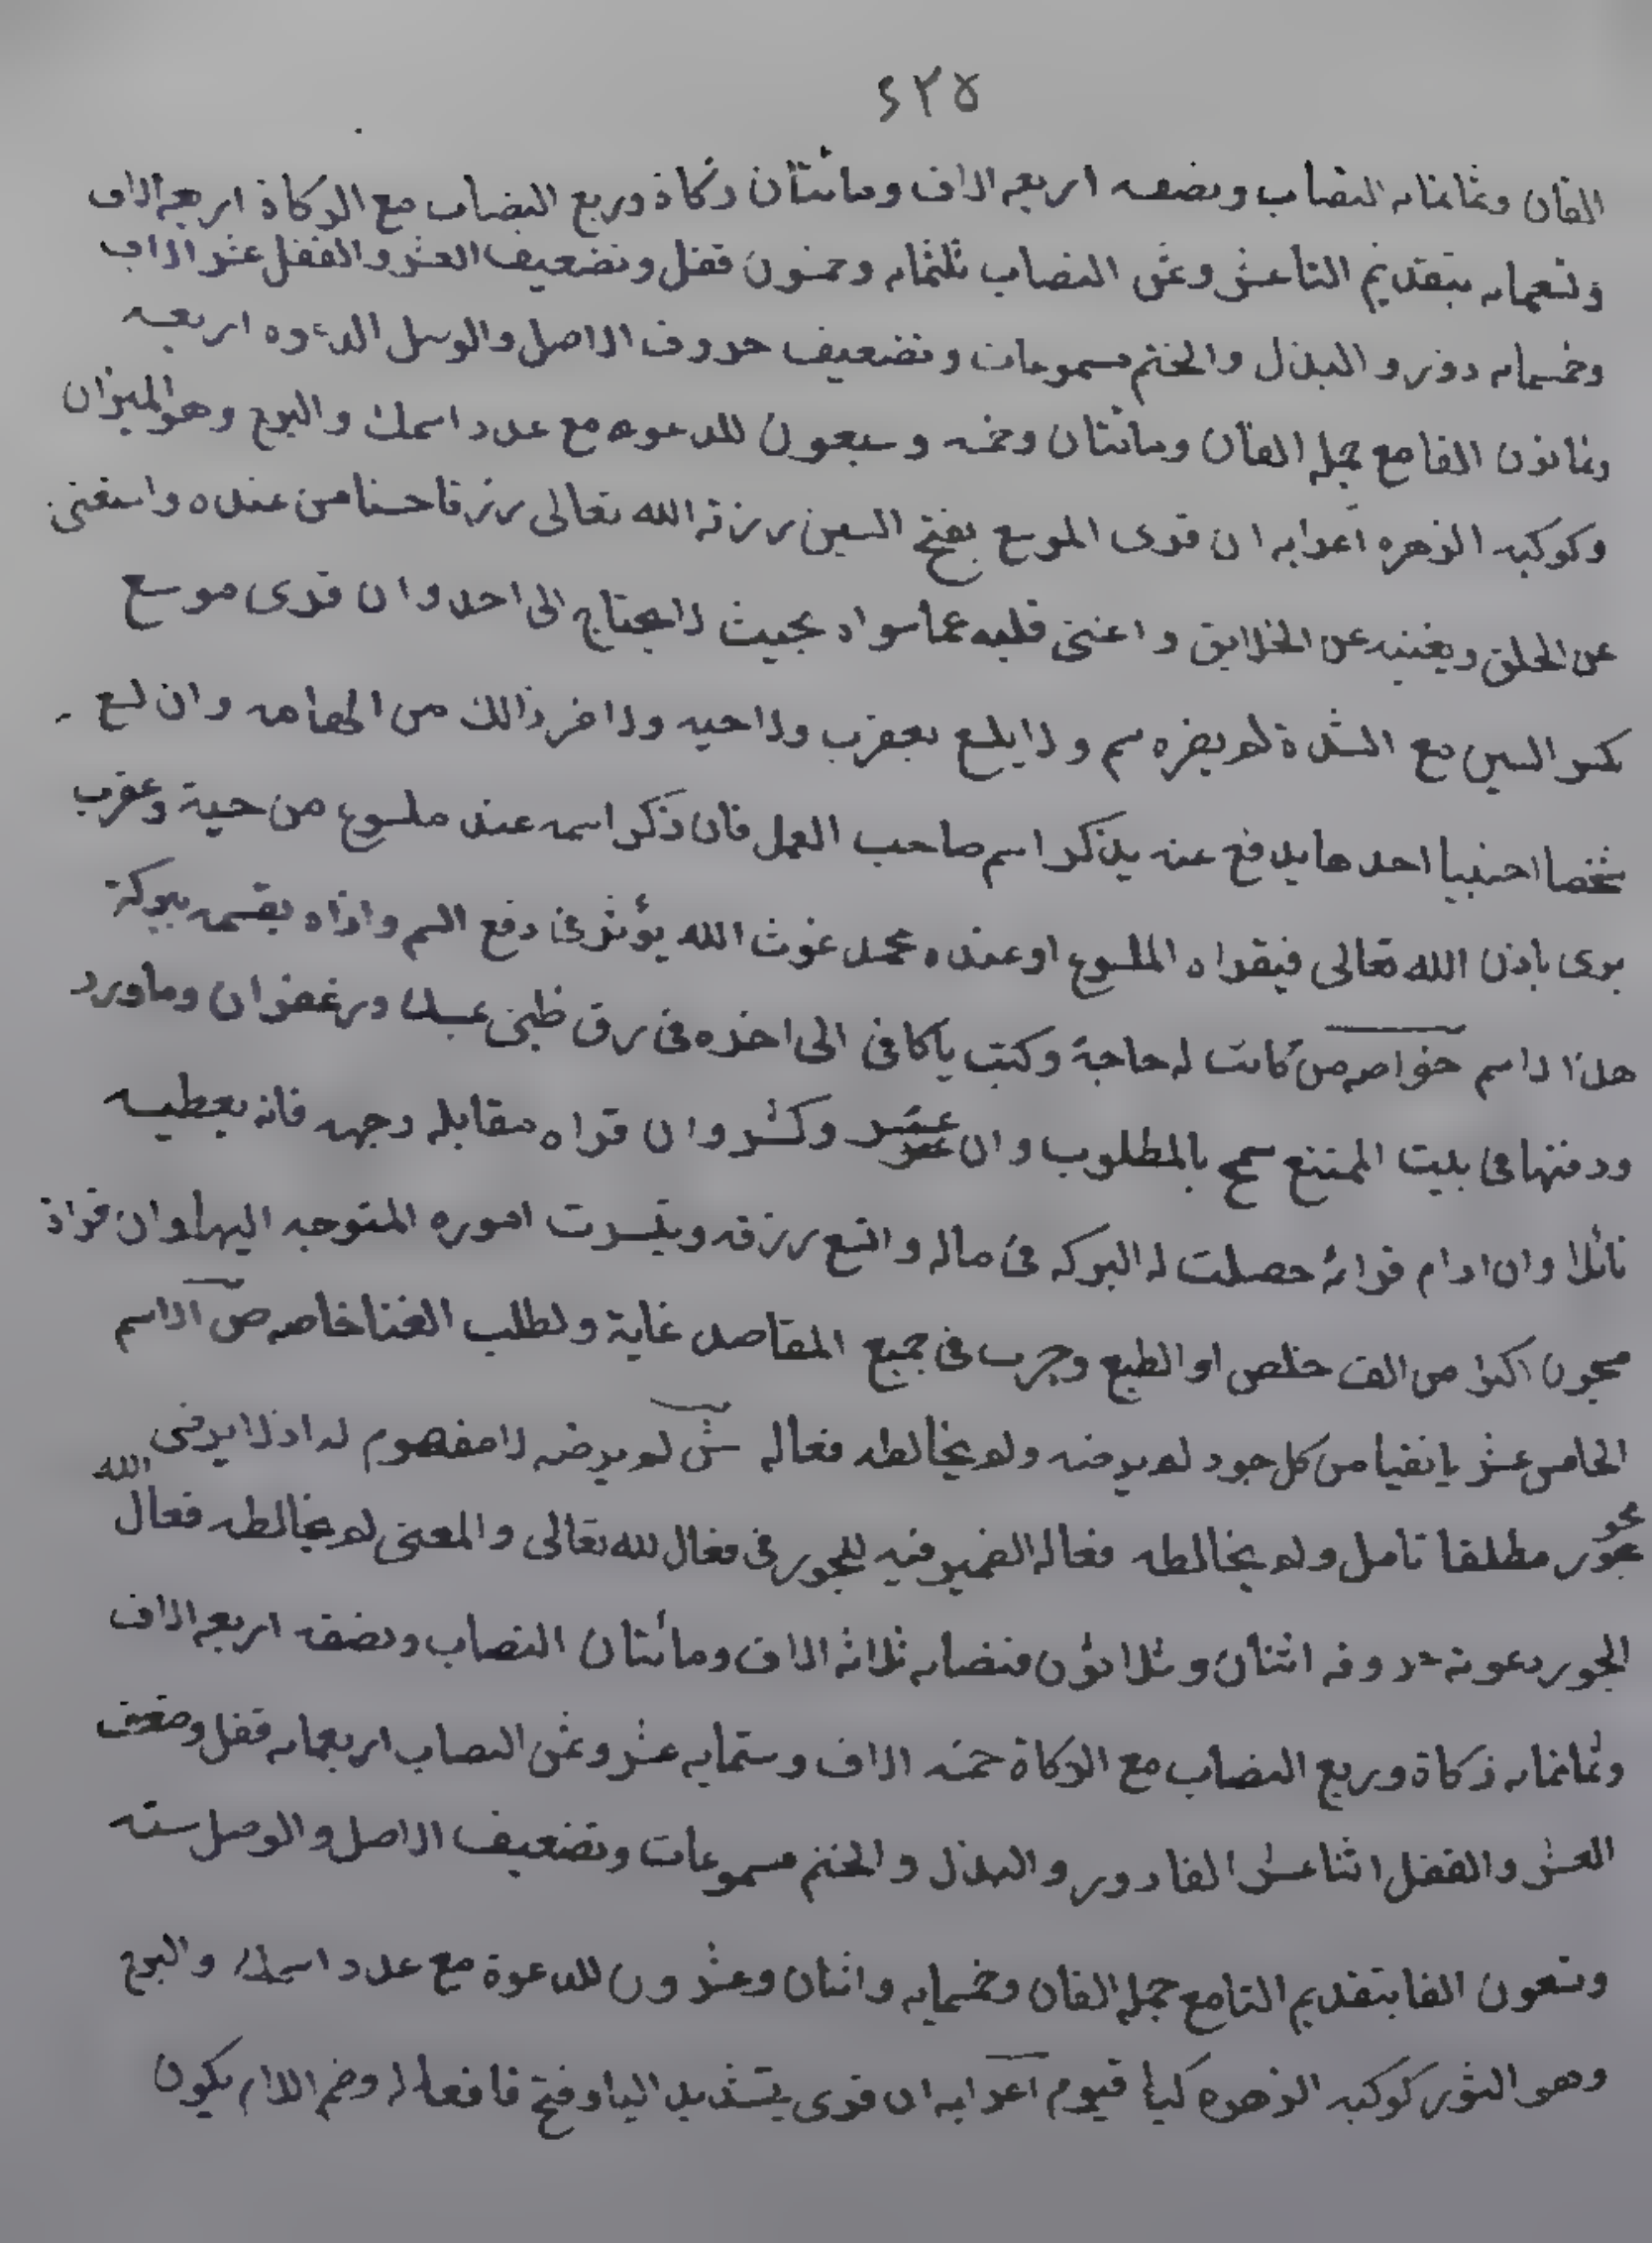 ٤٢٥
الفان وثمانمايه النصاب ونصفه اربعه الاف ومائتان زكاة وربع النصاب مع الزكاة اربعه الاف
وتسعمايه بتقديم التا عشر وثمن النصاب ثلثمايه وخمسون قفل وتضعيف العشر والقفل عشر الاف
وخمسمايه دور والبذل والختم مسموعات وتضعيف حروف الاصل والوصل الدعوه اربعه
وثمانون الفا مع جمله الفان ومائتان وخمسه وسبعون للدعوه مع عدد اسمك والبرج وهو الميزان
وكوكبه الزهره اعرابه ان قرى الموسع بفتح السين رزقه الله تعالى رزقا حسنا من عنده واستغنى
عن الخلق ويغنيه عن الخلايق واغنى قلبه عما سواه بحيث لا يحتاج الى احد وان قرى موسع
بكسر السين مع الشدة لم يضره سم ولا يلسع بعقرب ولا حيه ولا غير ذالك من الهامه وان لسع
شخصا اجنبيا احدها يدفع عنه يذكر اسم صاحب العمل فان ذكر اسمه عند ملسوع من حية وعقرب
برى باذن الله تعالى فيقراه الملسوع او عنده محمد غوث الله يؤثر فى دفع السم واذاه بقسمه ببركة
هذا الاسم خواصه من كانت له حاجة وكتب ياكافى الى اخره فى رق ظبى بمسك وزعفران وماورد
ودفنها فى بيت الممتنع سمح بالمطلوب وان عسر وكشر وان قراه مقابله وجهه فانه يعطيه
نائلا وان ادام قرائه حصلت له البركه فى ماله واتسع رزقه وتيسرت اموره المتوجه اليها وان قراه
مسجون اكثر من الف خلص او الطبع وجرب فى جميع المقاصد غاية ولطلب الغنا خاصه ص الاسم
الخامس عشر يا نقيا من كل جور لم يرضه ولم يخالطه فعاله ش لم يرضه لا مفهوم له اذ لا يرضى الله
بجور مطلقا تامل ولم يخالطه فعاله الضمير فيه للجور فى فعال لله تعالى والمعنى لم يخالطه فعال
الجور دعوته حروفه اثنان وثلاثون فنصابه ثلاثه الاف ومائتان النصاب ونصفه اربعه الاف
وثمانمايه زكاة وربع النصاب مع الزكاة خمسه الاف وستمايه عشر وثمن النصاب اربعمايه قفل وضعف
العشر والقفل اثنا عشر الفا دور والبذل والختم مسموعات وتضعيف الاصل والوصل سته
وتسعون الفا بتقديم التا مع جمله الفان وخمسمايه واثنان وعشرون للدعوة مع عدد اسمك والبرج
وهو الثور كوكبه الزهره كيا قيوم اعرابه ان قرى بتشديد اليا وفتح فا فعاله وضم اللام يكون